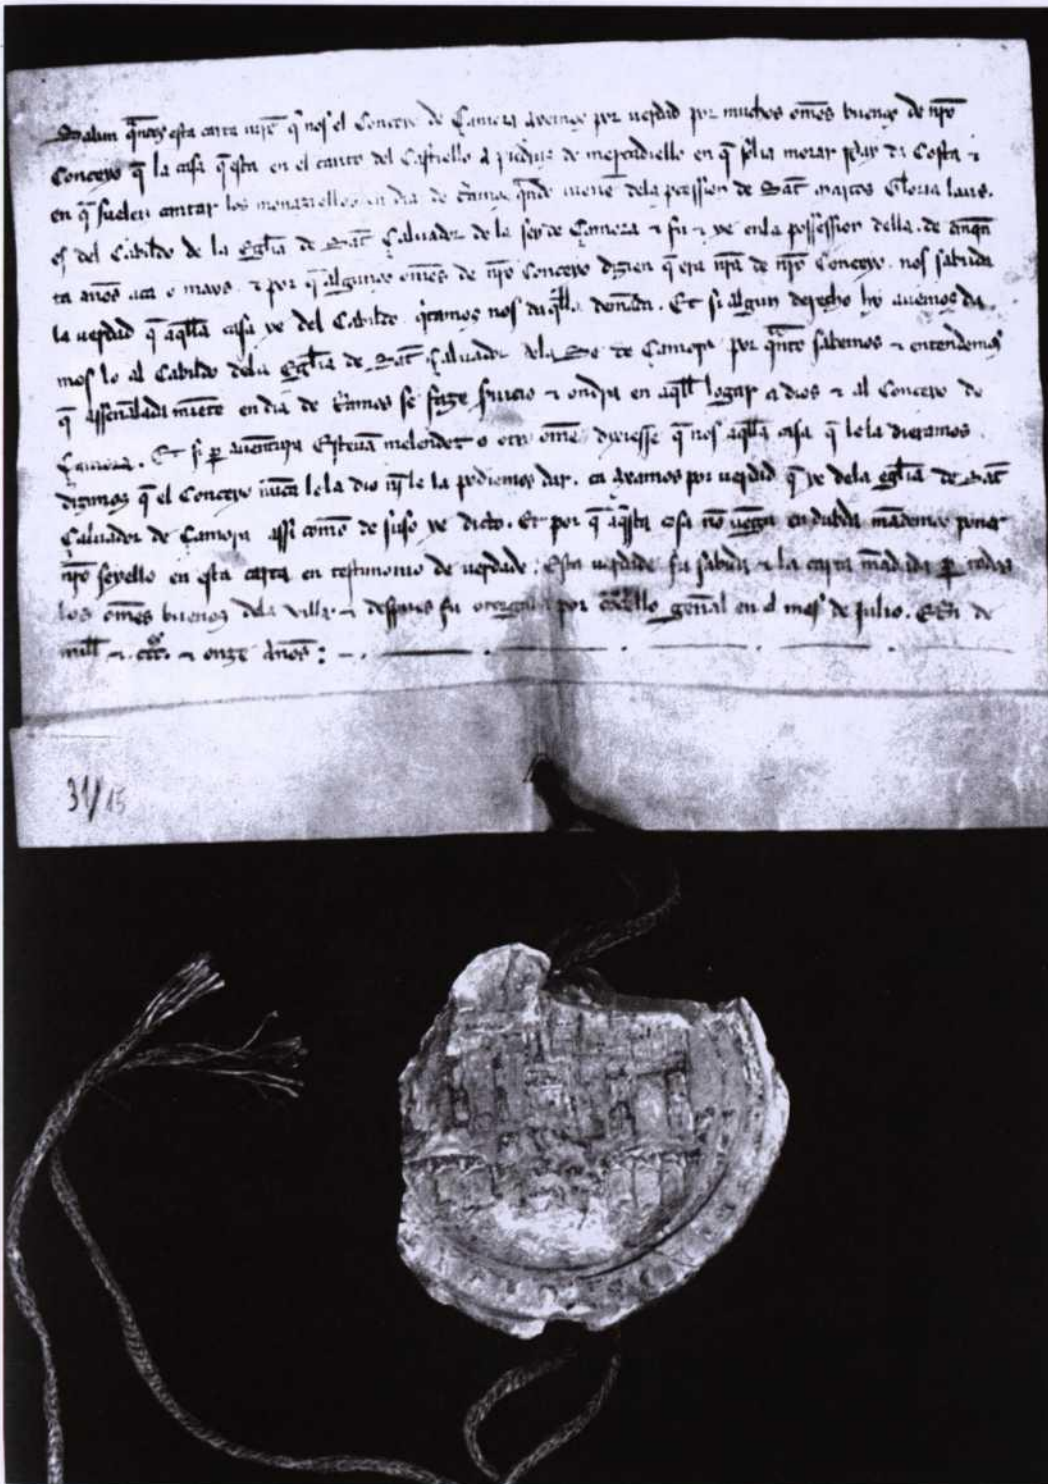 Saban quantos esta carta uirē q̄ nos el Conceyo de Çamora auemos por uerdad por muchos om̄es buenos de n̄ro
Conceyo q̄ la casa q̄ esta en el canto del Castiello a de mercadiello en q̄ solia morar da Costa ⁊
en q̄ suelen cantar los monaziellos en dia de quando uienē dela de Sāt Marcos Gloria laus.
es del Cabildo de la Egl̄ia de Sāt Çaluador de la sey de Çamora ⁊ fu ⁊ ye en la possession della. de
ta anos aca o mays. ⁊ por q̄ algunos om̄es de n̄ro Conceyo dizien q̄ era n̄ra de n̄ro Conceyo. nos sabuda
la uerdad q̄ aq̄lla casa ye del Cabildo. q̇tamos nos daq̄lla demāda. Et si algun derecho hy auemos da
mos lo al Cabildo dela Egl̄ia de Sāt Çaluador dela Se de Çamora por q̄nto sabemos ⁊ entendemos
q̄ assennalada miētre en dia de Ramos se faze seruicio ⁊ ondra en aq̄ll logar a dios ⁊ al Conceyo de
Çamora. Et si p̄ auentura Esteuā melendez o otro om̄e dixiesse q̄ nos aq̄lla casa q̄ lela dieramos.
dizimos q̄ el Conceyo nūca lela dio nī le la podiemos dar. ca axamos por uerdad q̄ ye dela egl̄ia de Sāt
Çaluador de Çamora assi comō de suso ye dicto. Et por q̄ aq̄sta cosa nō uēga en dubda mādemos poner
n̄ro seyello en esta carta en testimonio de uerdade. Esta uerdade fu sabuda ⁊ la carta mādada p̄ todos
los om̄es buenos dela villa ⁊ despues fu otorgada por Cōceyo genāl en el mes de Julio. Er̄a de
mill ⁊ .ccc. ⁊ onze Anos :
31/15